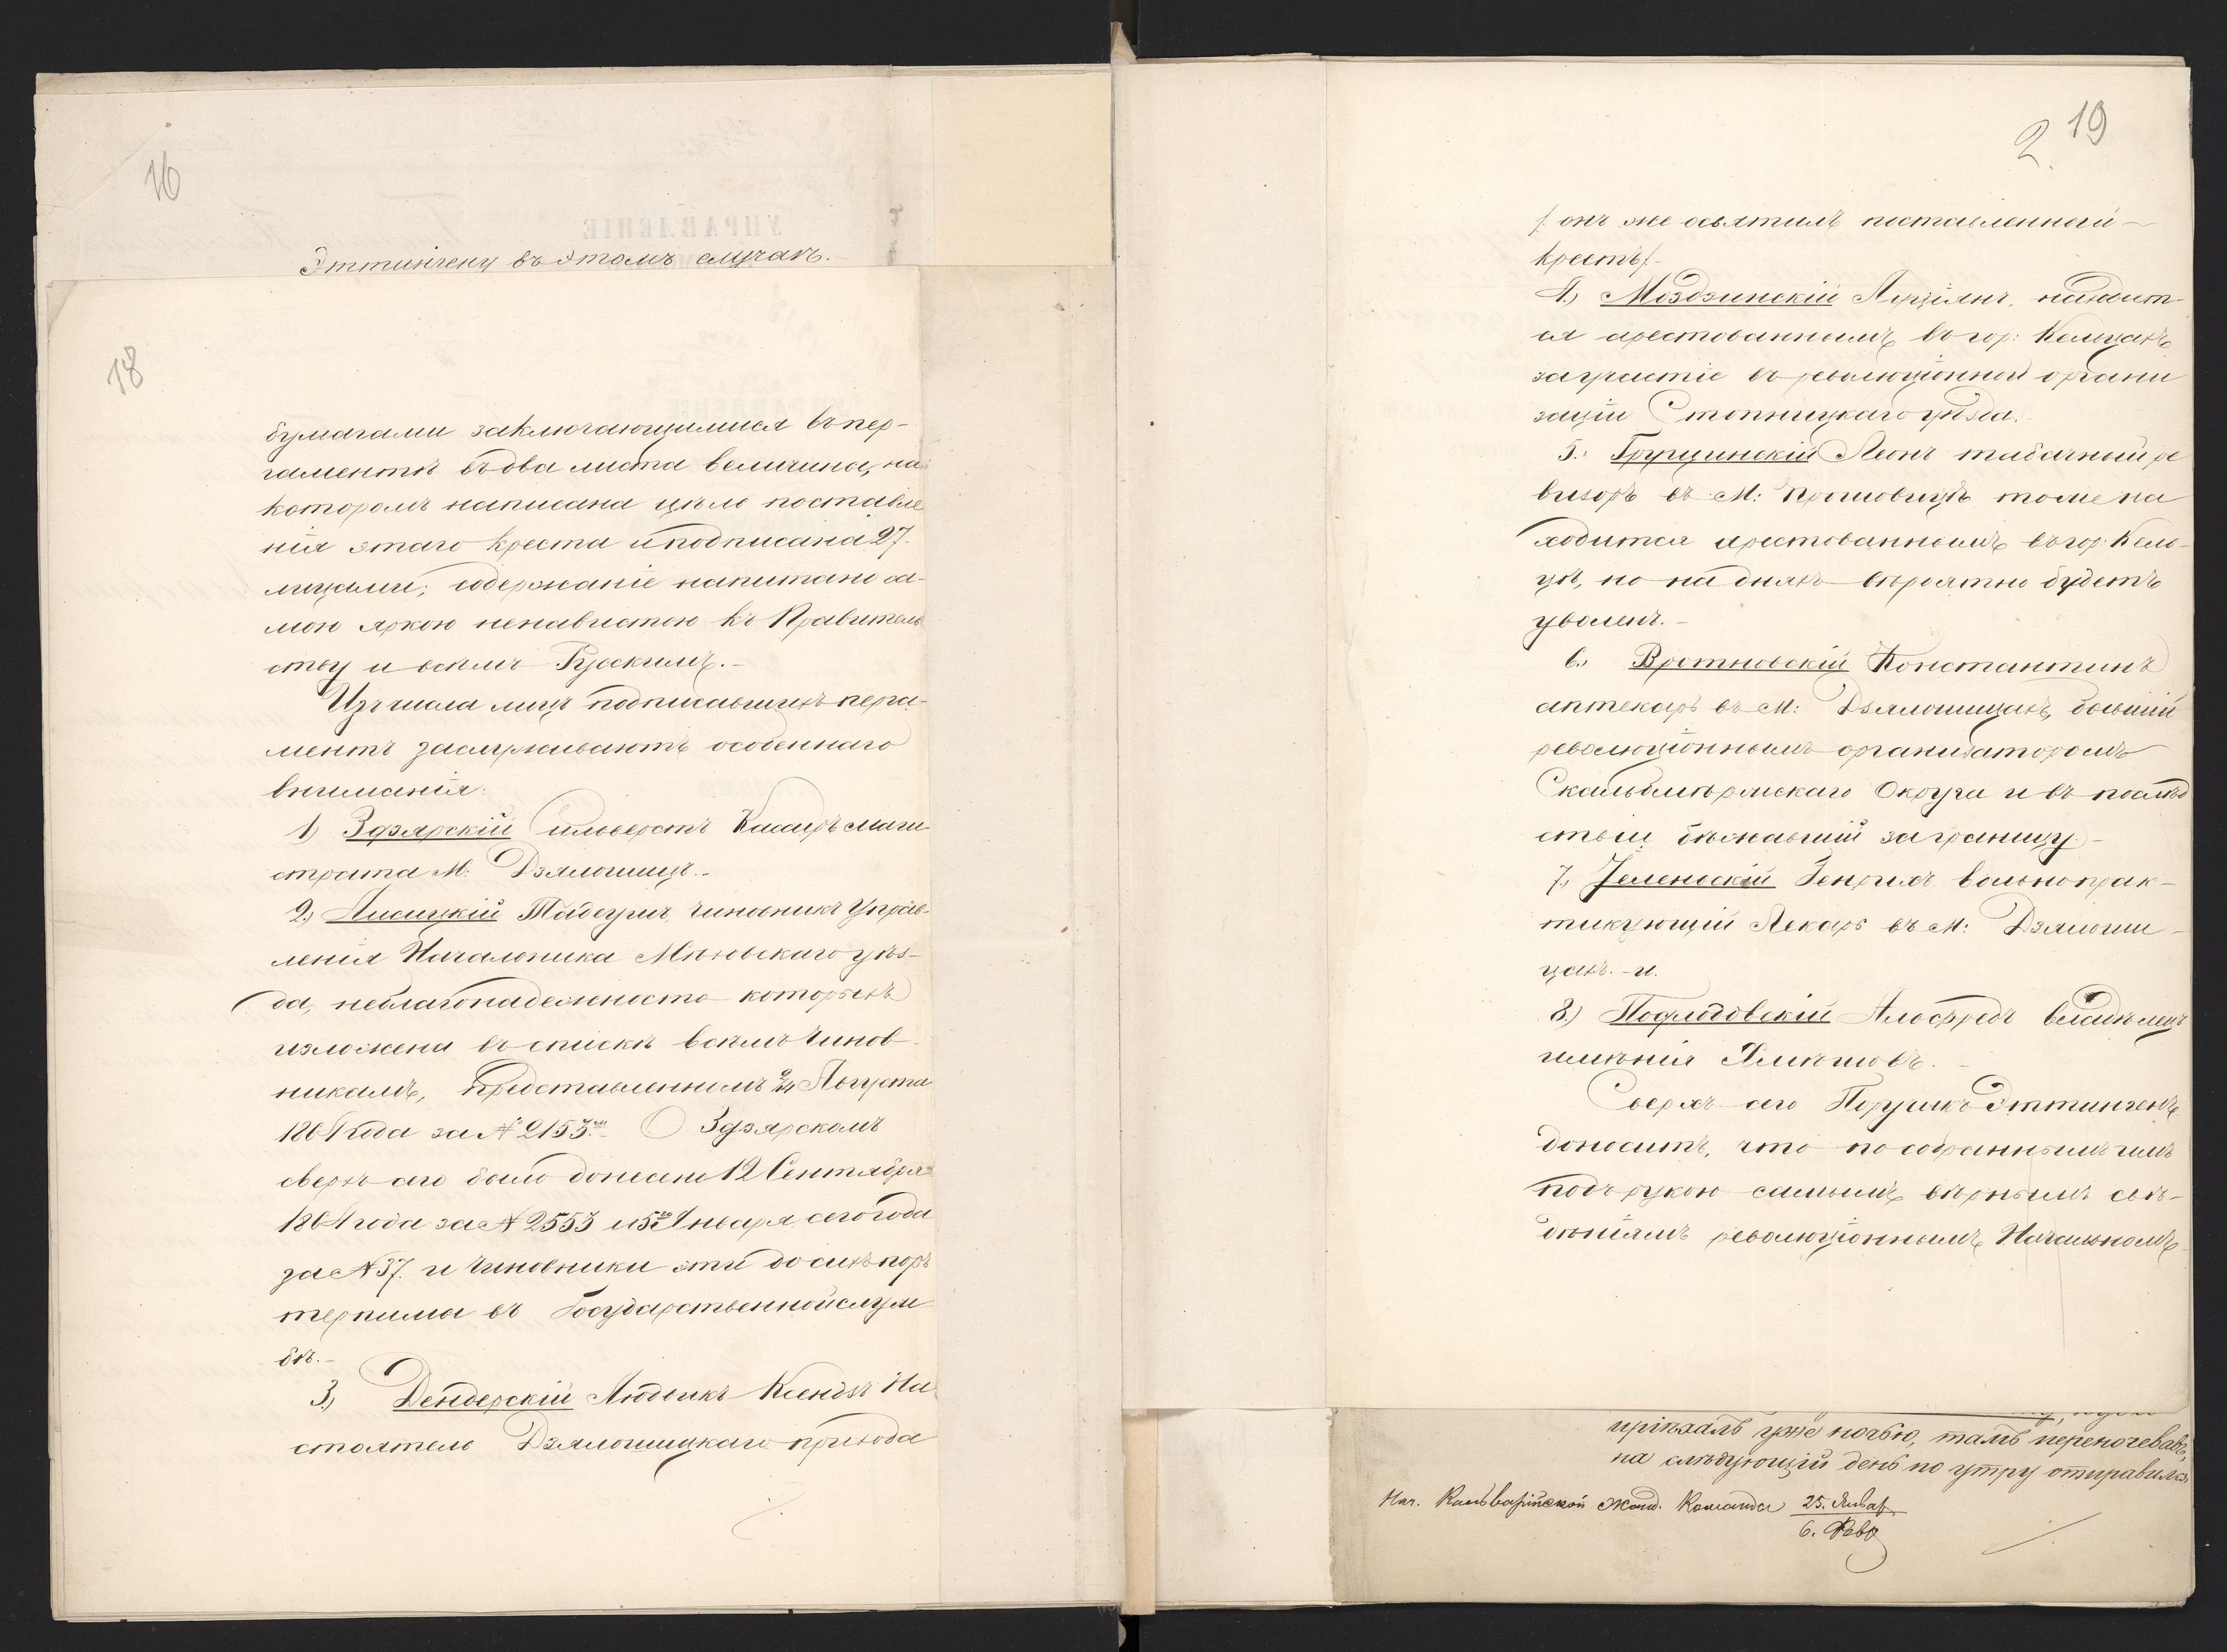 16
Эттингену въ этомъ случаѣ.
18
бумагами заключающимися въ пер-
гаментѣ въ два листа величина, на
которомъ написана цѣль поставле
нія этаго креста и подписана 27.
лицами; содержаніе напитано са-
мою яркою ненавистью къ Правитель
ству и всѣмъ Русскимъ.-
Изъ числа лицъ подписавшихъ перга-
ментъ заслуживаютъ особеннаго
вниманія:
1) Здзярскій Сильверстъ Кассиръ Маги
страта М: Дзялошицъ.-
2.) Лисицкій Тадеушъ, Чиновникъ Управ-
ленія Начальника Мѣховскаго уѣз-
да, неблагонадежность которыхъ
изложена въ спискѣ всѣмъ Чинов-
никамъ, представленномъ Августа
1864 года за № 2153.- О Здзярскомъ
сверхъ сего было донесено 12 Сентября
1864 года за № 2553 и 5го Января сего года
за № 37. и Чиновники эти до сихъ поръ
терпимы въ Государственной служ
бѣ.-
3.) Дендерскій Людвикъ Ксендзъ На
стоятель Дзялошицкаго прихода
2. 19
/: онъ же освятилъ поставленный
крестъ/.-
4.) Моздзинскій Луціанъ, находит-
ся арестованнымъ въ гор: Кельцахъ
за участіе въ революціонной органи
заціи Стопницкаго уѣзда.
5. Грущинскій Леонъ табачный ре
визоръ въ М: Прошовицѣ тоже на
ходится арестованнымъ въ гор: Кель-
цѣ, но на дняхъ вѣроятно будетъ
уволенъ.-
6., Вротновскій Константинъ
аптекарь въ М: Дзялошицахъ, бывшій
революціоннымъ организаторомъ
Скальбмѣржскаго Округа и въ послѣд
ствіи бѣжавшій за границу.-
7., Зеленскій Генрихъ вольнопрак-
тикующій Лекарь въ М: Дзялоши-
цахъ.- и.
8.) Альфредъ владѣлецъ
имѣнія
Сверхъ сего Поручикъ Эттингенъ
доноситъ, что по собраннымъ имъ
подъ рукою самымъ вѣрнымъ свѣ-
дѣніямъ революціоннымъ Начальникомъ
пріѣхалъ уже ночью, тамъ переночевавъ,
на слѣдующій день по утру отправился
Нач. Кальварійской Жанд. Команды 25. Январ.
6. Февр